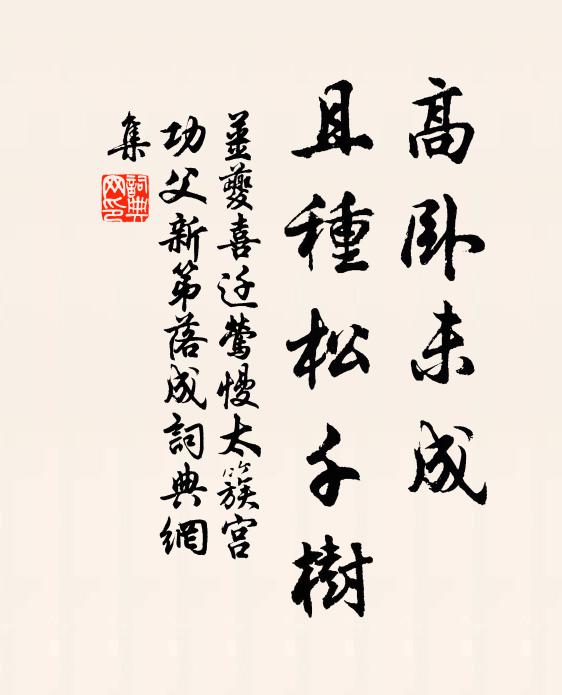 高卧未成
且種松千樹
姜夔喜迁鶯慢太簇宫
功父新第落成詞典網
集
詞典
网印